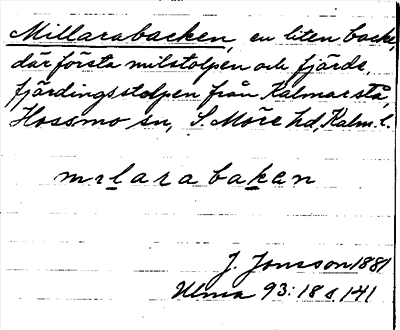 Millarabacken, en liten backe,
där första milstolpen och fjärde,
fjärdingsstolpen från Kalmar stå,
Hossmo sn, S. Möre hd, Kalm. l.
mɩlarabaken
J. Jonsson 1881
Ulma 93:18 s. 141